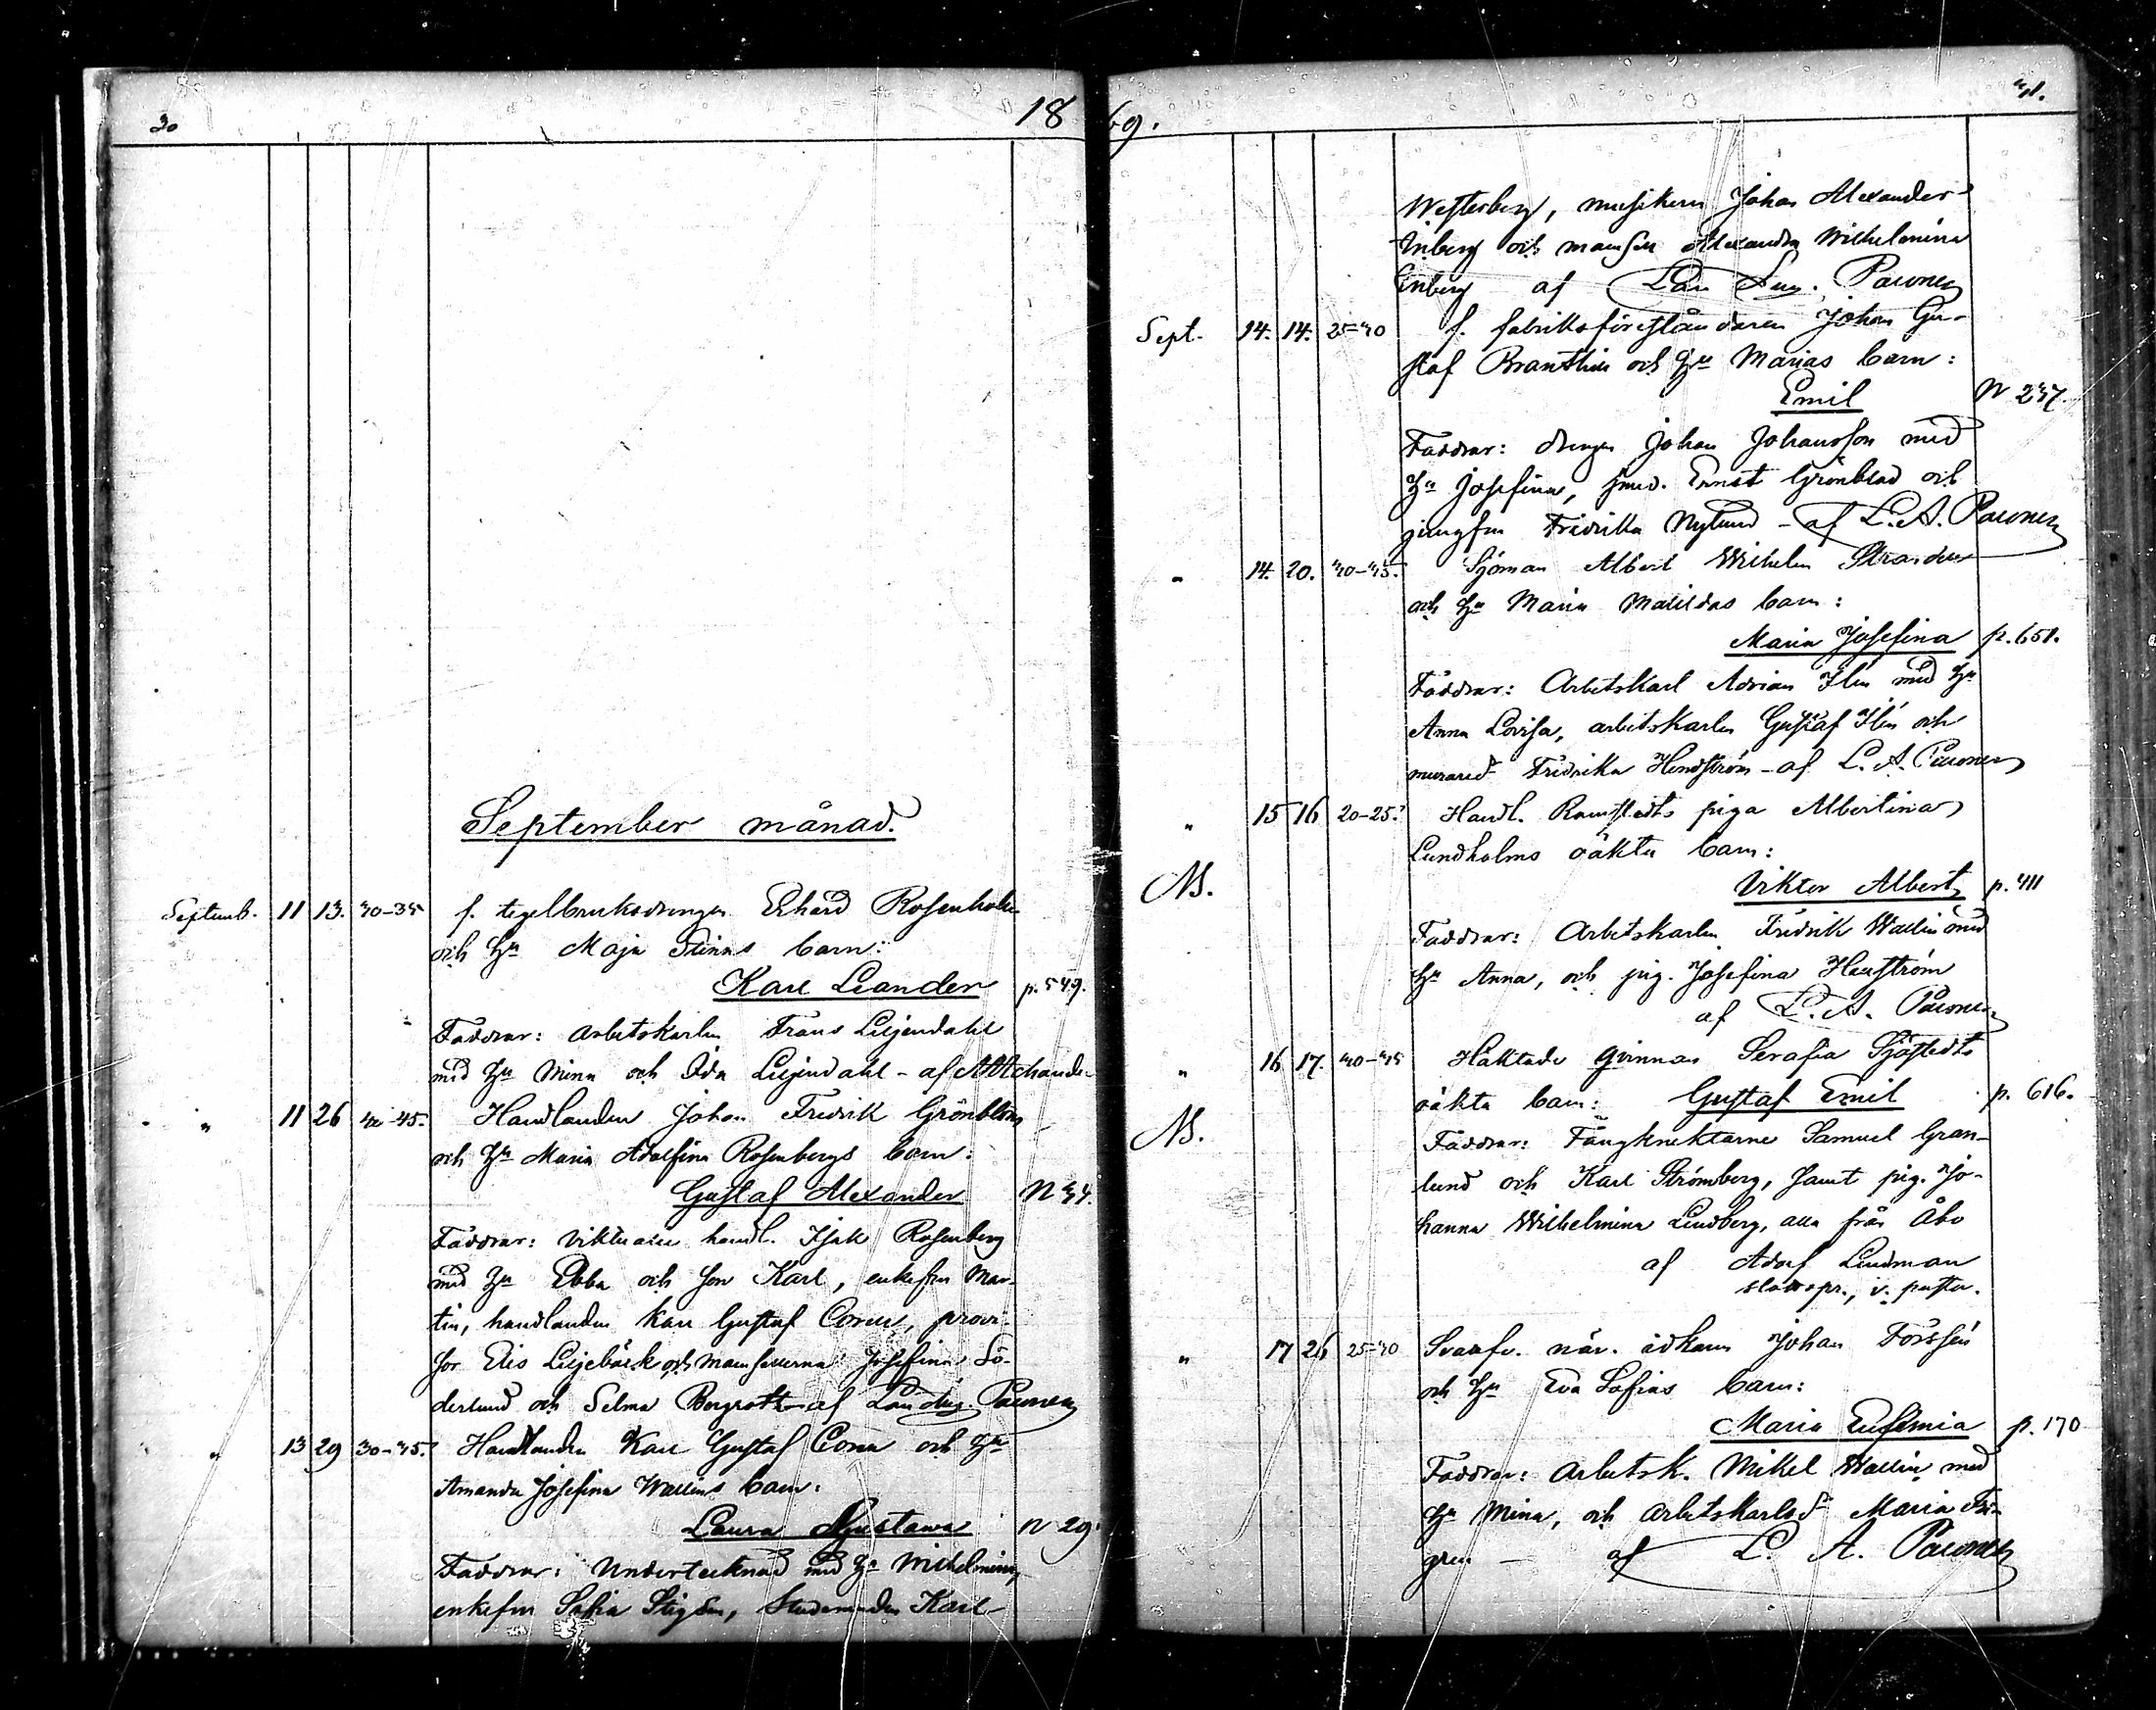 30
18
September månad.
Septemb. 11 13. 30-35 f. tegelbruksdrengen Erhard Rosenholm
och Hu Maja Stinas barn:
Karl Leander p. 549.
Faddrar: arbetskarlen Frans Liljendahl
med Hu Mina och Ida Liljendahl - af
" 11 26 40-45. Handlanden Johan Fredrik Grönblom
och Hu Maria Adolfina Rosenbergs barn:
Gustaf Alexander N 34.
Faddrar: Viktualie handl. Isak Rosenberg
med Hu Ebba och son Karl, enkefru Mar-
tin, handlanden Karl Gustaf, provi-
sor Elis Liljebäck och mamsellerna Josefina Sö-
derlund och Selma Bergroth af Paewnen
" 13 29 30-35. Handlanden Karl Gustaf och Hu
Amanda Josefina Wallins barn:
Laura Gustawa N 29.
Faddrar: Undertecknad med Hu Wilhelmina,
enkefru Sofia, Studeranden Karl
69.
41.
Westerberg, musikern Johan Alexander
Inberg och mamsell Alexandra Wilhelmina
Inberg af Lars Aug. Paewnen
Sept. 14. 14. 25-40 f. fabriksföreståndaren Johan Gu-
staf och Hu Marias barn:
Emil N 237.
Faddrar: drengen Johan Johansson med
Hu Josefina, smed. Ernst Grönblad och
jungfru Fredrika Nylund - af L. A. Paewnen
" 14. 20. 40-45. Sjöman Albert Wilhelm
och Hu Maria Matildas barn:
Maria Josefina p. 651.
Faddrar: Arbetskarl Adrian Ilen med Hu
Anna Lovisa, arbetskarlen Gustaf Ilen och
Fredrika - af L. A. Paewnen
" 15 16 20-25. Handl. Ramstedts piga Albertina
Lundholms oäkta barn:
NB. Viktor Albert p. 411
Faddrar: Arbetskarlen Fredrik Wallin med
Hu Anna, och pig. Josefina
af L. A. Paewnen
" 16 17. 40-45 Häktade qvinnan Serafia Sjöstedts
oäkta barn: Gustaf Emil p. 616.
NB. Faddrar: Fångknektarne Samuel Gran-
lund och Karl Strömberg, samt pig. Jo-
hanna Wilhelmina Lindberg, alla från Åbo
af Adolf Lindman
slottspr., v. pastor.
" 17 26 25-30 Svarfv. Johan Forssén
och Hu Eva Sofias barn:
Maria Eufemia p. 170
Faddrar: Arbetsk. Mikel Wallin med
Hu Mina, och Maria
gren - af L. A. Paewnen